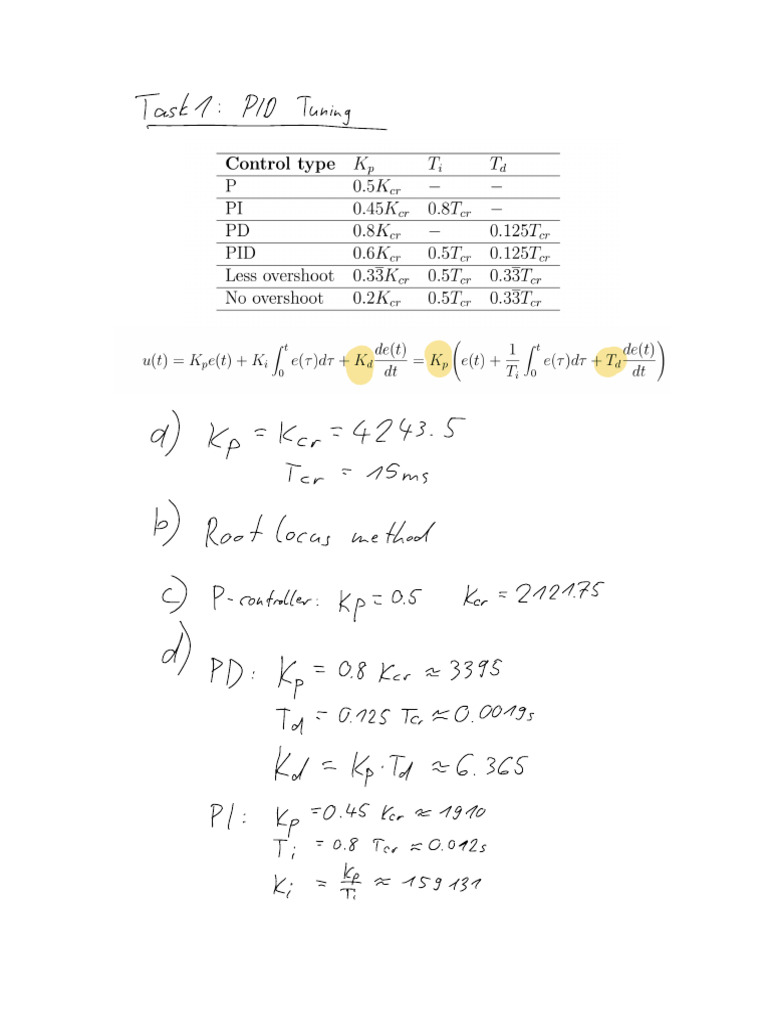 Task 1: PID Tuning
Control type K_p T_i T_d
P 0.5K_cr – –
PI 0.45K_cr 0.8T_cr –
PD 0.8K_cr – 0.125T_cr
PID 0.6K_cr 0.5T_cr 0.125T_cr
Less overshoot 0.33̅K_cr 0.5T_cr 0.33̅T_cr
No overshoot 0.2K_cr 0.5T_cr 0.33̅T_cr
u(t) = K_p e(t) + K_i ∫_0^t e(τ)dτ + K_d de(t)/dt = K_p ( e(t) + 1/T_i ∫_0^t e(τ)dτ + T_d de(t)/dt )
a) K_p = K_cr = 4243.5
T_cr = 15ms
b) Root locus method
c) P-controller: K_p = 0.5 K_cr = 2121.75
d)
PD: K_p = 0.8 K_cr ≈ 3395
T_d = 0.125 T_cr ≈ 0.0019s
K_d = K_p · T_d ≈ 6.365
PI: K_p = 0.45 K_cr ≈ 1910
T_i = 0.8 T_cr ≈ 0.012s
K_i = K_p/T_i ≈ 159131